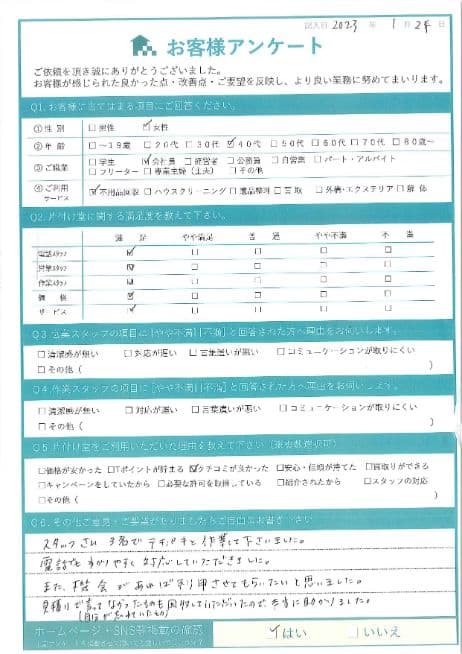 記入日 2023 年 1 月 24 日
お客様アンケート
ご依頼を頂き誠にありがとうございました。
お客様が感じられた良かった点・改善点・ご要望を反映し、より良い業務に努めてまいります。
Q1.お客様に当てはまる項目にご回答ください。
①性別 □男性 ☑女性
②年齢 □～19歳 □20代 □30代 ☑40代 □50代 □60代 □70代 □80歳～
③ご職業 □学生 ☑会社員 □経営者 □公務員 □自営業 □パート・アルバイト
□フリーター □専業主婦(主夫) □その他
④ご利用サービス ☑不用品回収 □ハウスクリーニング □遺品整理 □買取 □外構・エクステリア □解体
Q2.片付け堂に関する満足度を教えて下さい。
満足 やや満足 普通 やや不満 不満
電話スタッフ ☑ □ □ □ □
営業スタッフ ☑ □ □ □ □
作業スタッフ ☑ □ □ □ □
価格 ☑ □ □ □ □
サービス ☑ □ □ □ □
Q3.営業スタッフの項目に[やや不満][不満]と回答された方へ理由をお伺いします。
□清潔感が無い □対応が遅い □言葉遣いが悪い □コミュニケーションが取りにくい
□その他( )
Q4.作業スタッフの項目に[やや不満][不満]と回答された方へ理由をお伺いします。
□清潔感が無い □対応が遅い □言葉遣いが悪い □コミュニケーションが取りにくい
□その他( )
Q5.片付け堂をご利用いただいた理由を教えて下さい(※複数選択可)
□価格が安かった □Tポイントが貯まる ☑クチコミが良かった □安心・信頼が持てた □買取りができる
□キャンペーンをしていたから □必要な許可を取得している □紹介されたから □スタッフの対応
□その他( )
Q6.その他ご意見・ご要望がありましたらご自由にお書き下さい
スタッフさん 3名で テキパキと作業して下さいました。
電話もわかりやすく対応していただきました。
また、機会があればお利用させてもらいたいと思いました。
見積りで言ってなかったものも回収していただいたので本当に助かりました。
(自分が忘れていたもの)
ホームページ・SNS等掲載の確認
☑はい □いいえ